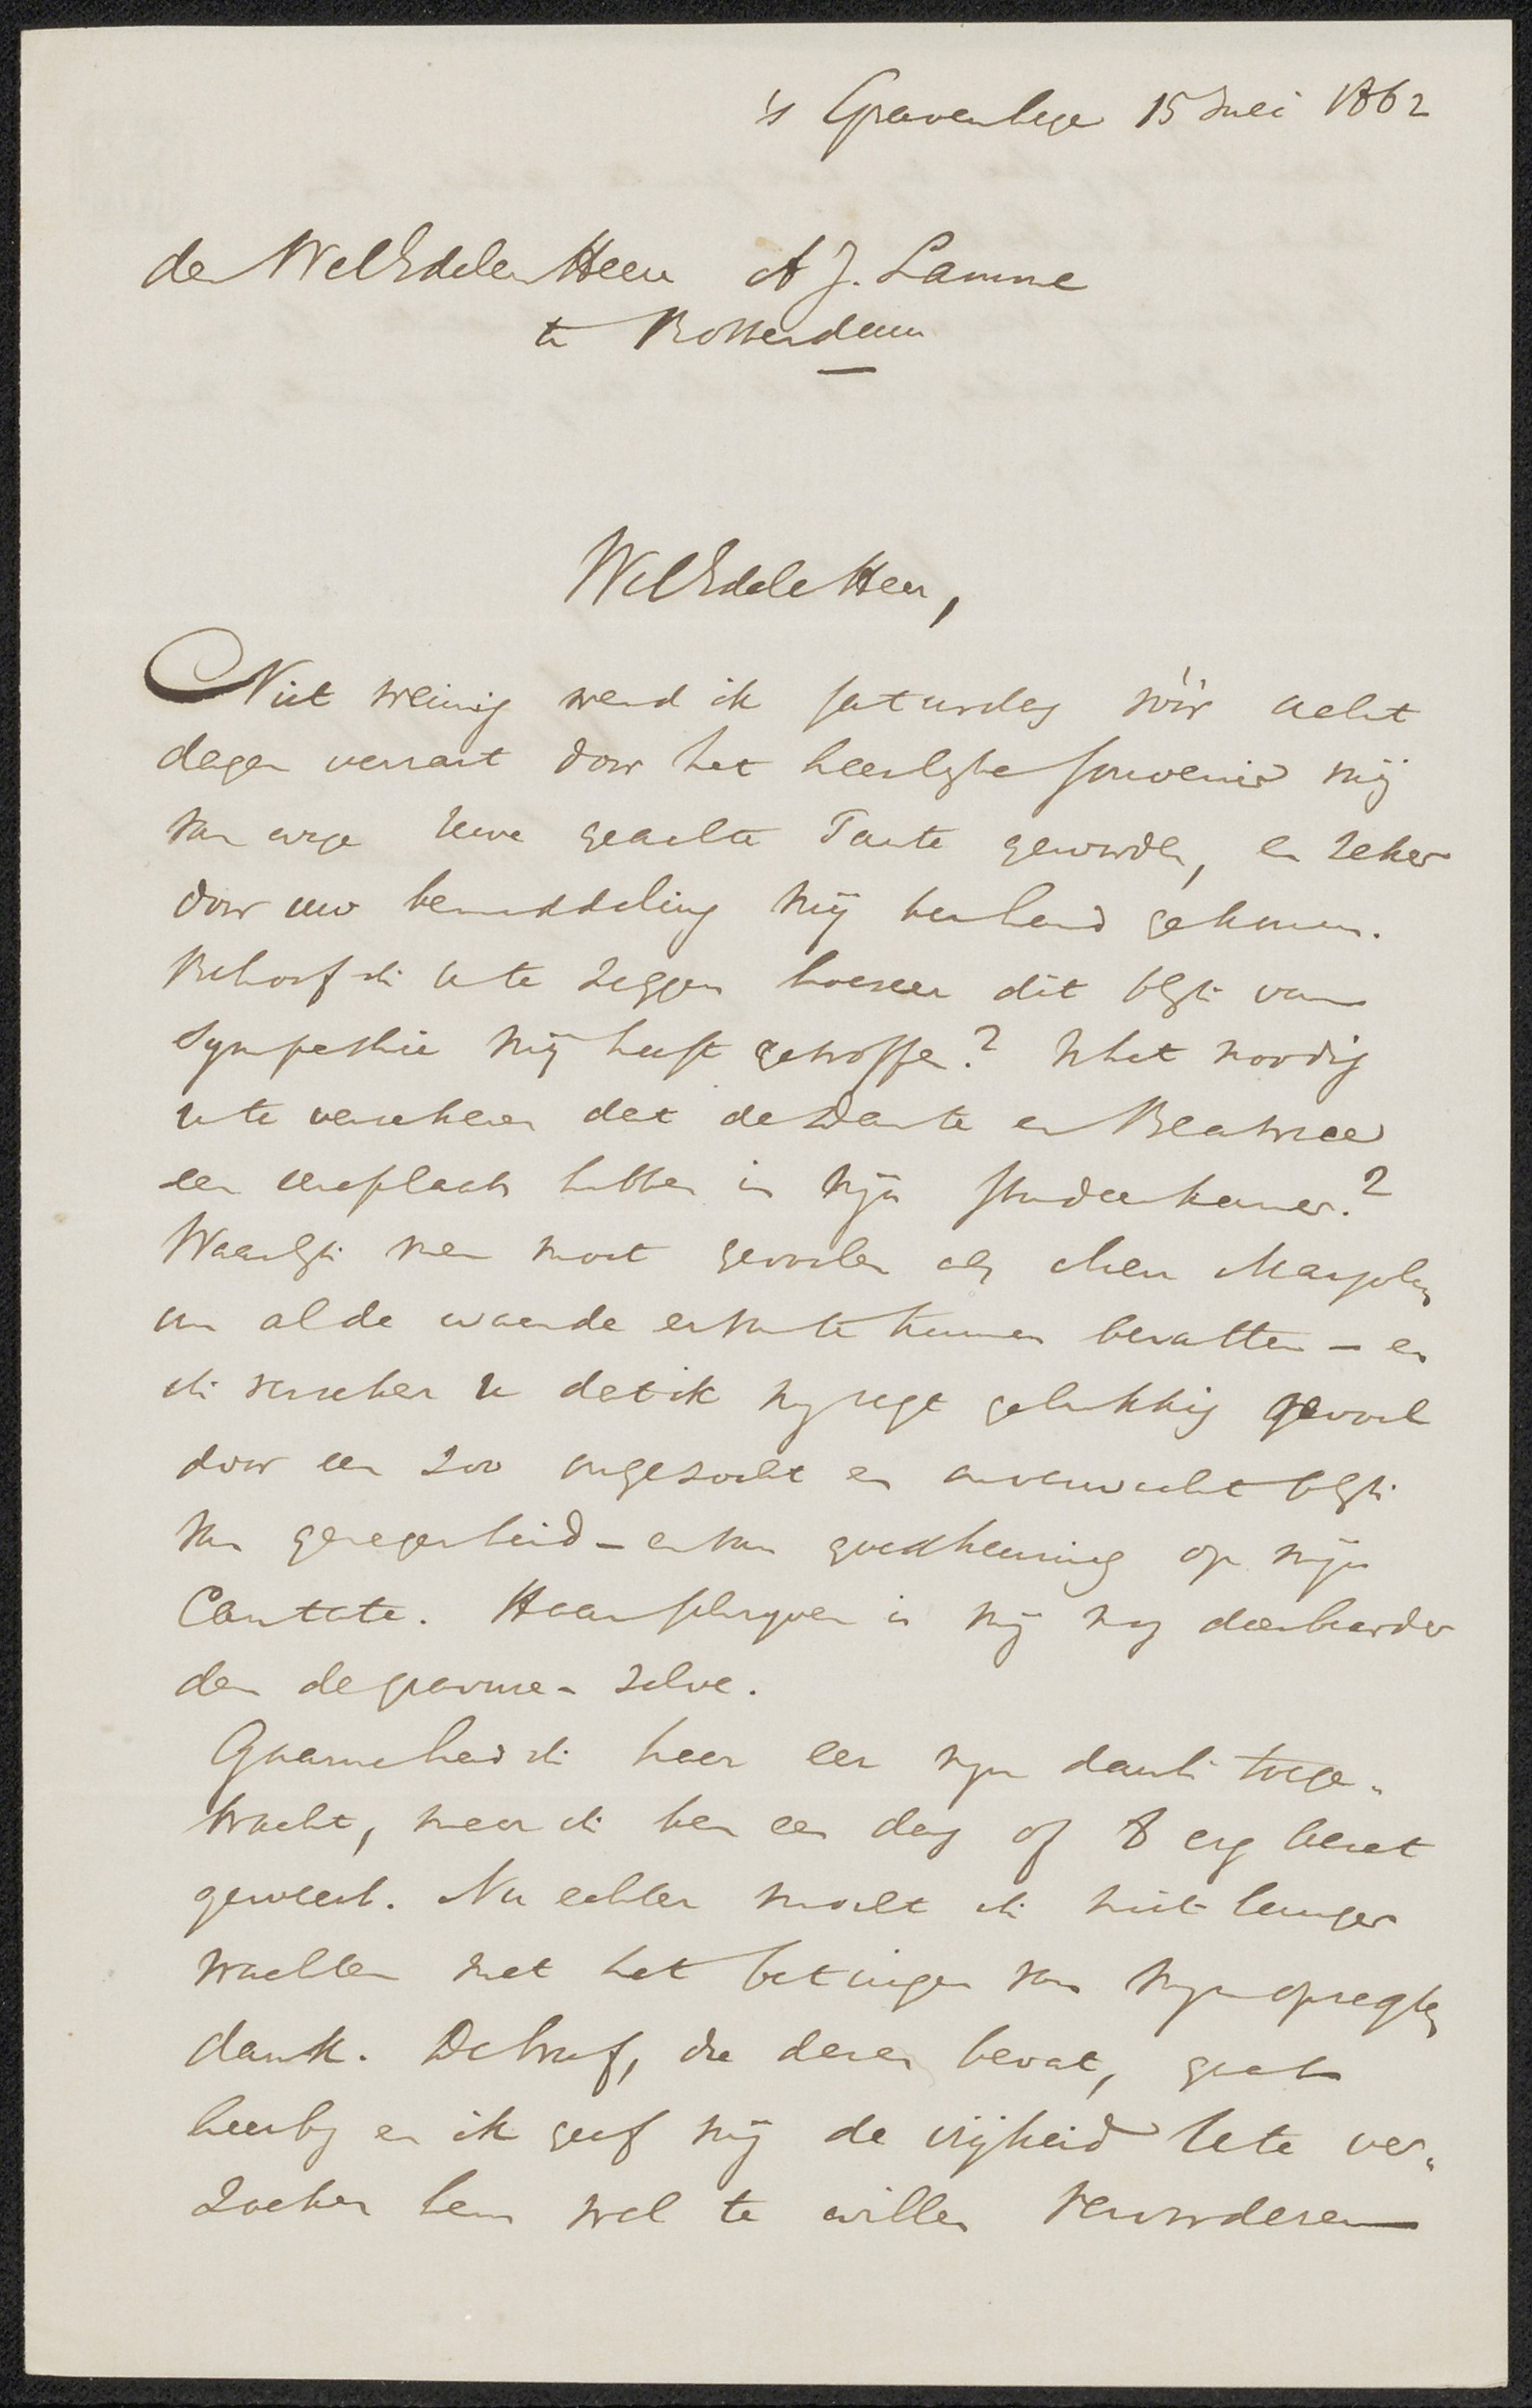 's Gravenhage 15 Mei 1862
den WelEdelen Heer A J. Lamme
te Rotterdam
WelEdele Heer,
Niet weinig werd ik saturdag vóór acht
dagen verrast door het heerlyke souvenir mij
van wege Uwe geachte Tante geworden, en zeker
door uw bemiddeling mij ter hand gekomen.
Behoef ik U te zeggen hoezeer dit blyk van
sympathie mij heeft getroffen? Is het noodig
U te verzekeren dat de Dante en Beatrice
een eereplaats hebben in mijn studeerkamer?
Waarlyk men moet gevoelen als Mevr Marjolin
om al de waarde er van te kunnen bevatten – en
ik verzeker U dat ik my regt gelukkig gevoel
door een zoo ongezocht en onverwacht blyk
van genegenheid – en van goedkeuring op mijn
Cantate. Haar schryven is mij nog dierbaarder
dan de gravure - zelve.
Gaarne had ik haar eer myn dank toege-
bracht, maar ik ben een dag of 8 erg bezet
geweest. Nu echter mocht ik niet langer
wachten met het betuigen van myn opregten
dank. De brief, die dezen bevat, gaat
hierby en ik geef mij de vrijheid U te ver-
zoeken hem wel te willen